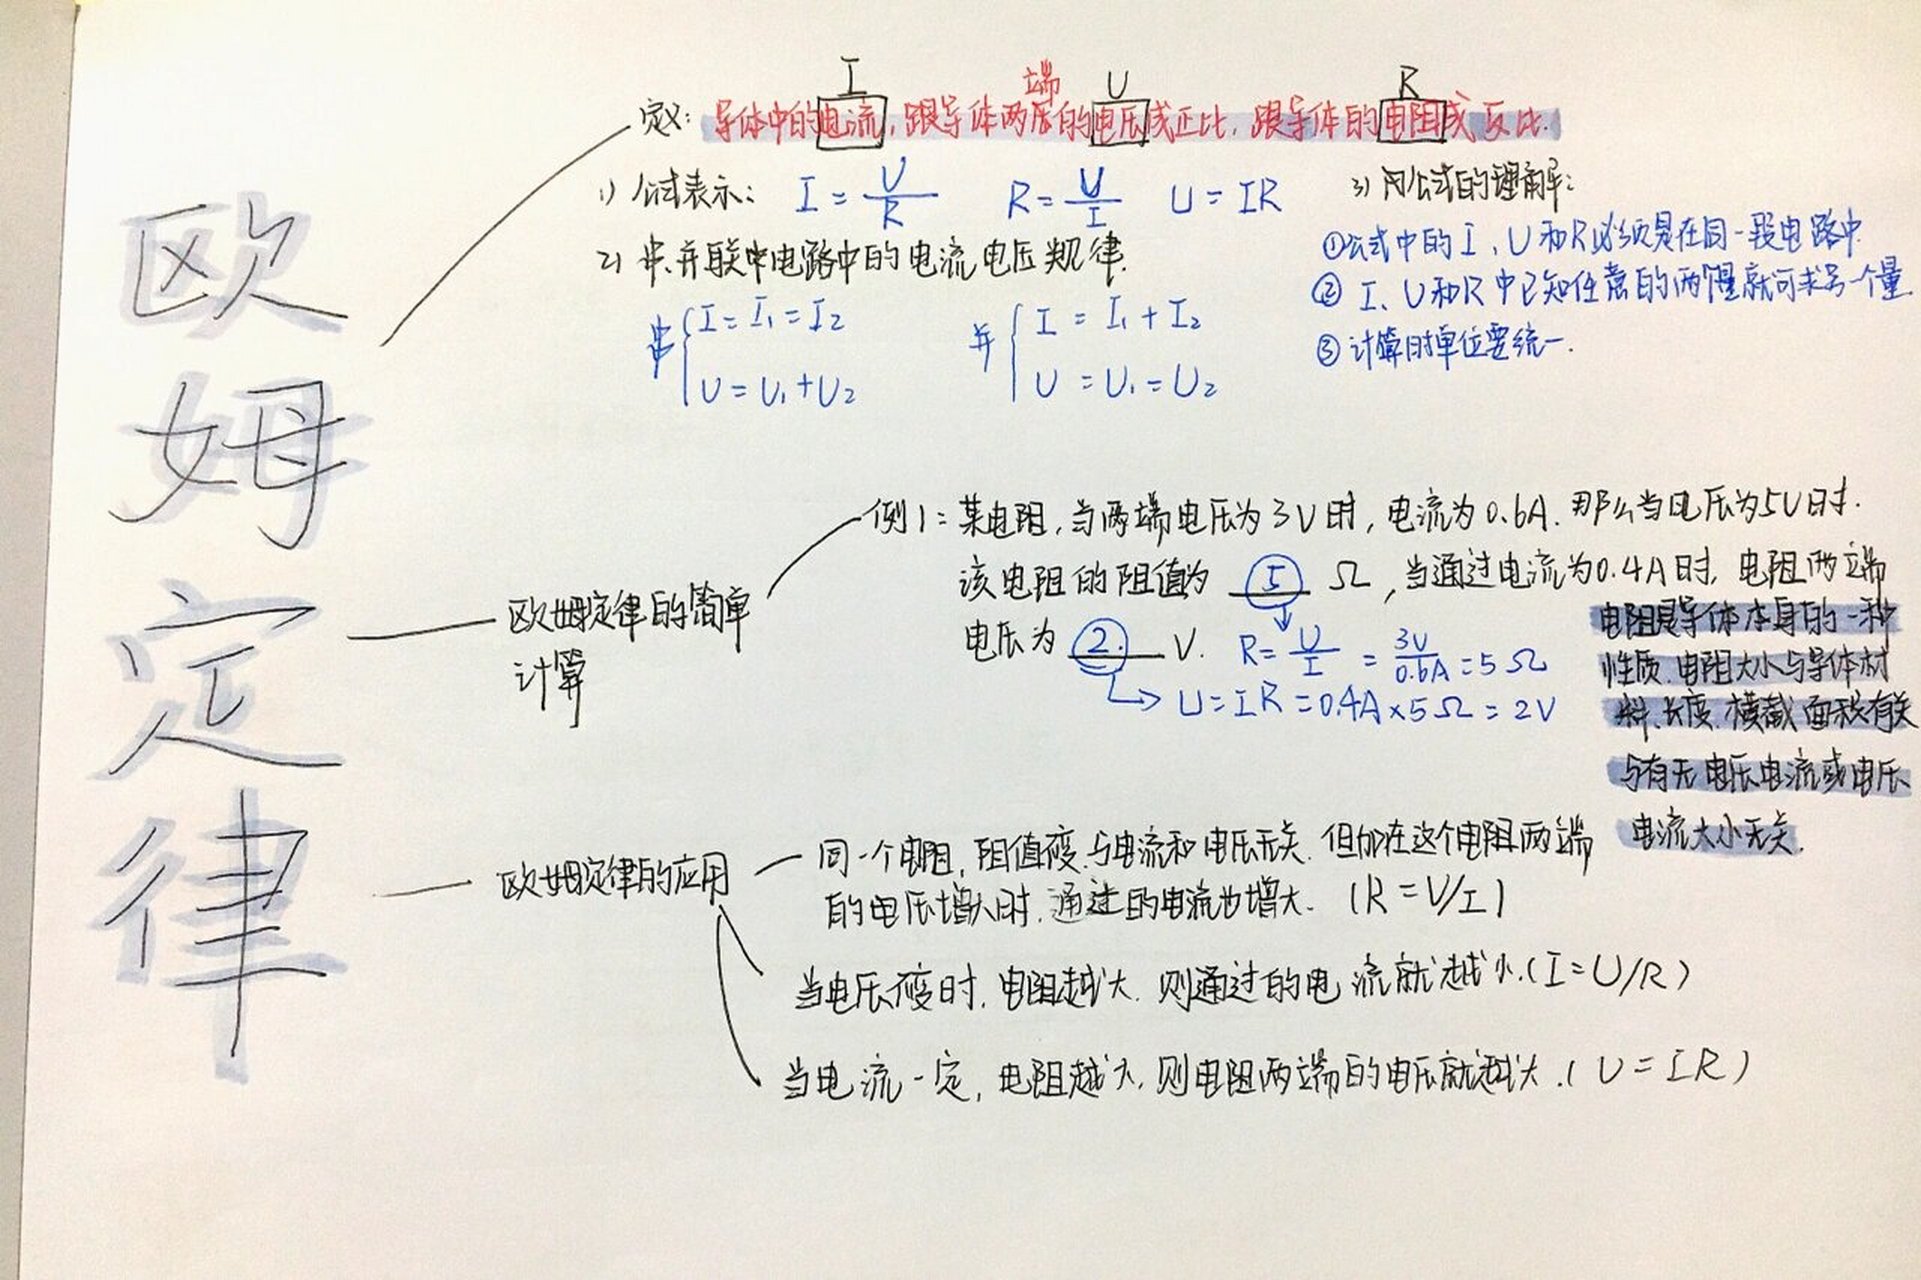 欧姆定律
I 端 U R
定义: 导体中的电流,跟导体两层的电压成正比,跟导体的电阻成反比.
1) 公式表示: I=U/R R=U/I U=IR
2) 串、并联中电路中的电流电压规律.
串 { I=I₁=I₂
U=U₁+U₂
并 { I=I₁+I₂
U=U₁=U₂
3) 对公式的理解:
①公式中的I、U和R必须是在同一段电路中.
② I、U和R中已知任意的两个量就可求另一个量.
③计算时单位要统一.
欧姆定律的简单
计算
例1: 某电阻,当两端电压为3V时,电流为0.6A.那么当电压为5V时.
该电阻的阻值为 5 Ω,当通过电流为0.4A时,电阻两端
电压为 2 V. R=U/I=3V/0.6A=5Ω
U=IR=0.4A×5Ω=2V
电阻是导体本身的一种
性质.电阻大小与导体材
料、长度、横截面积有关
与有无电压电流或电压
电流大小无关.
欧姆定律的应用
同一个电阻,阻值不变.与电流和电压无关.但加在这个电阻两端
的电压增大时.通过的电流也增大.(R=V/I)
当电压不变时,电阻越大.则通过的电流就越小.(I=U/R)
当电流一定,电阻越大,则电阻两端的电压就越大.(U=IR)